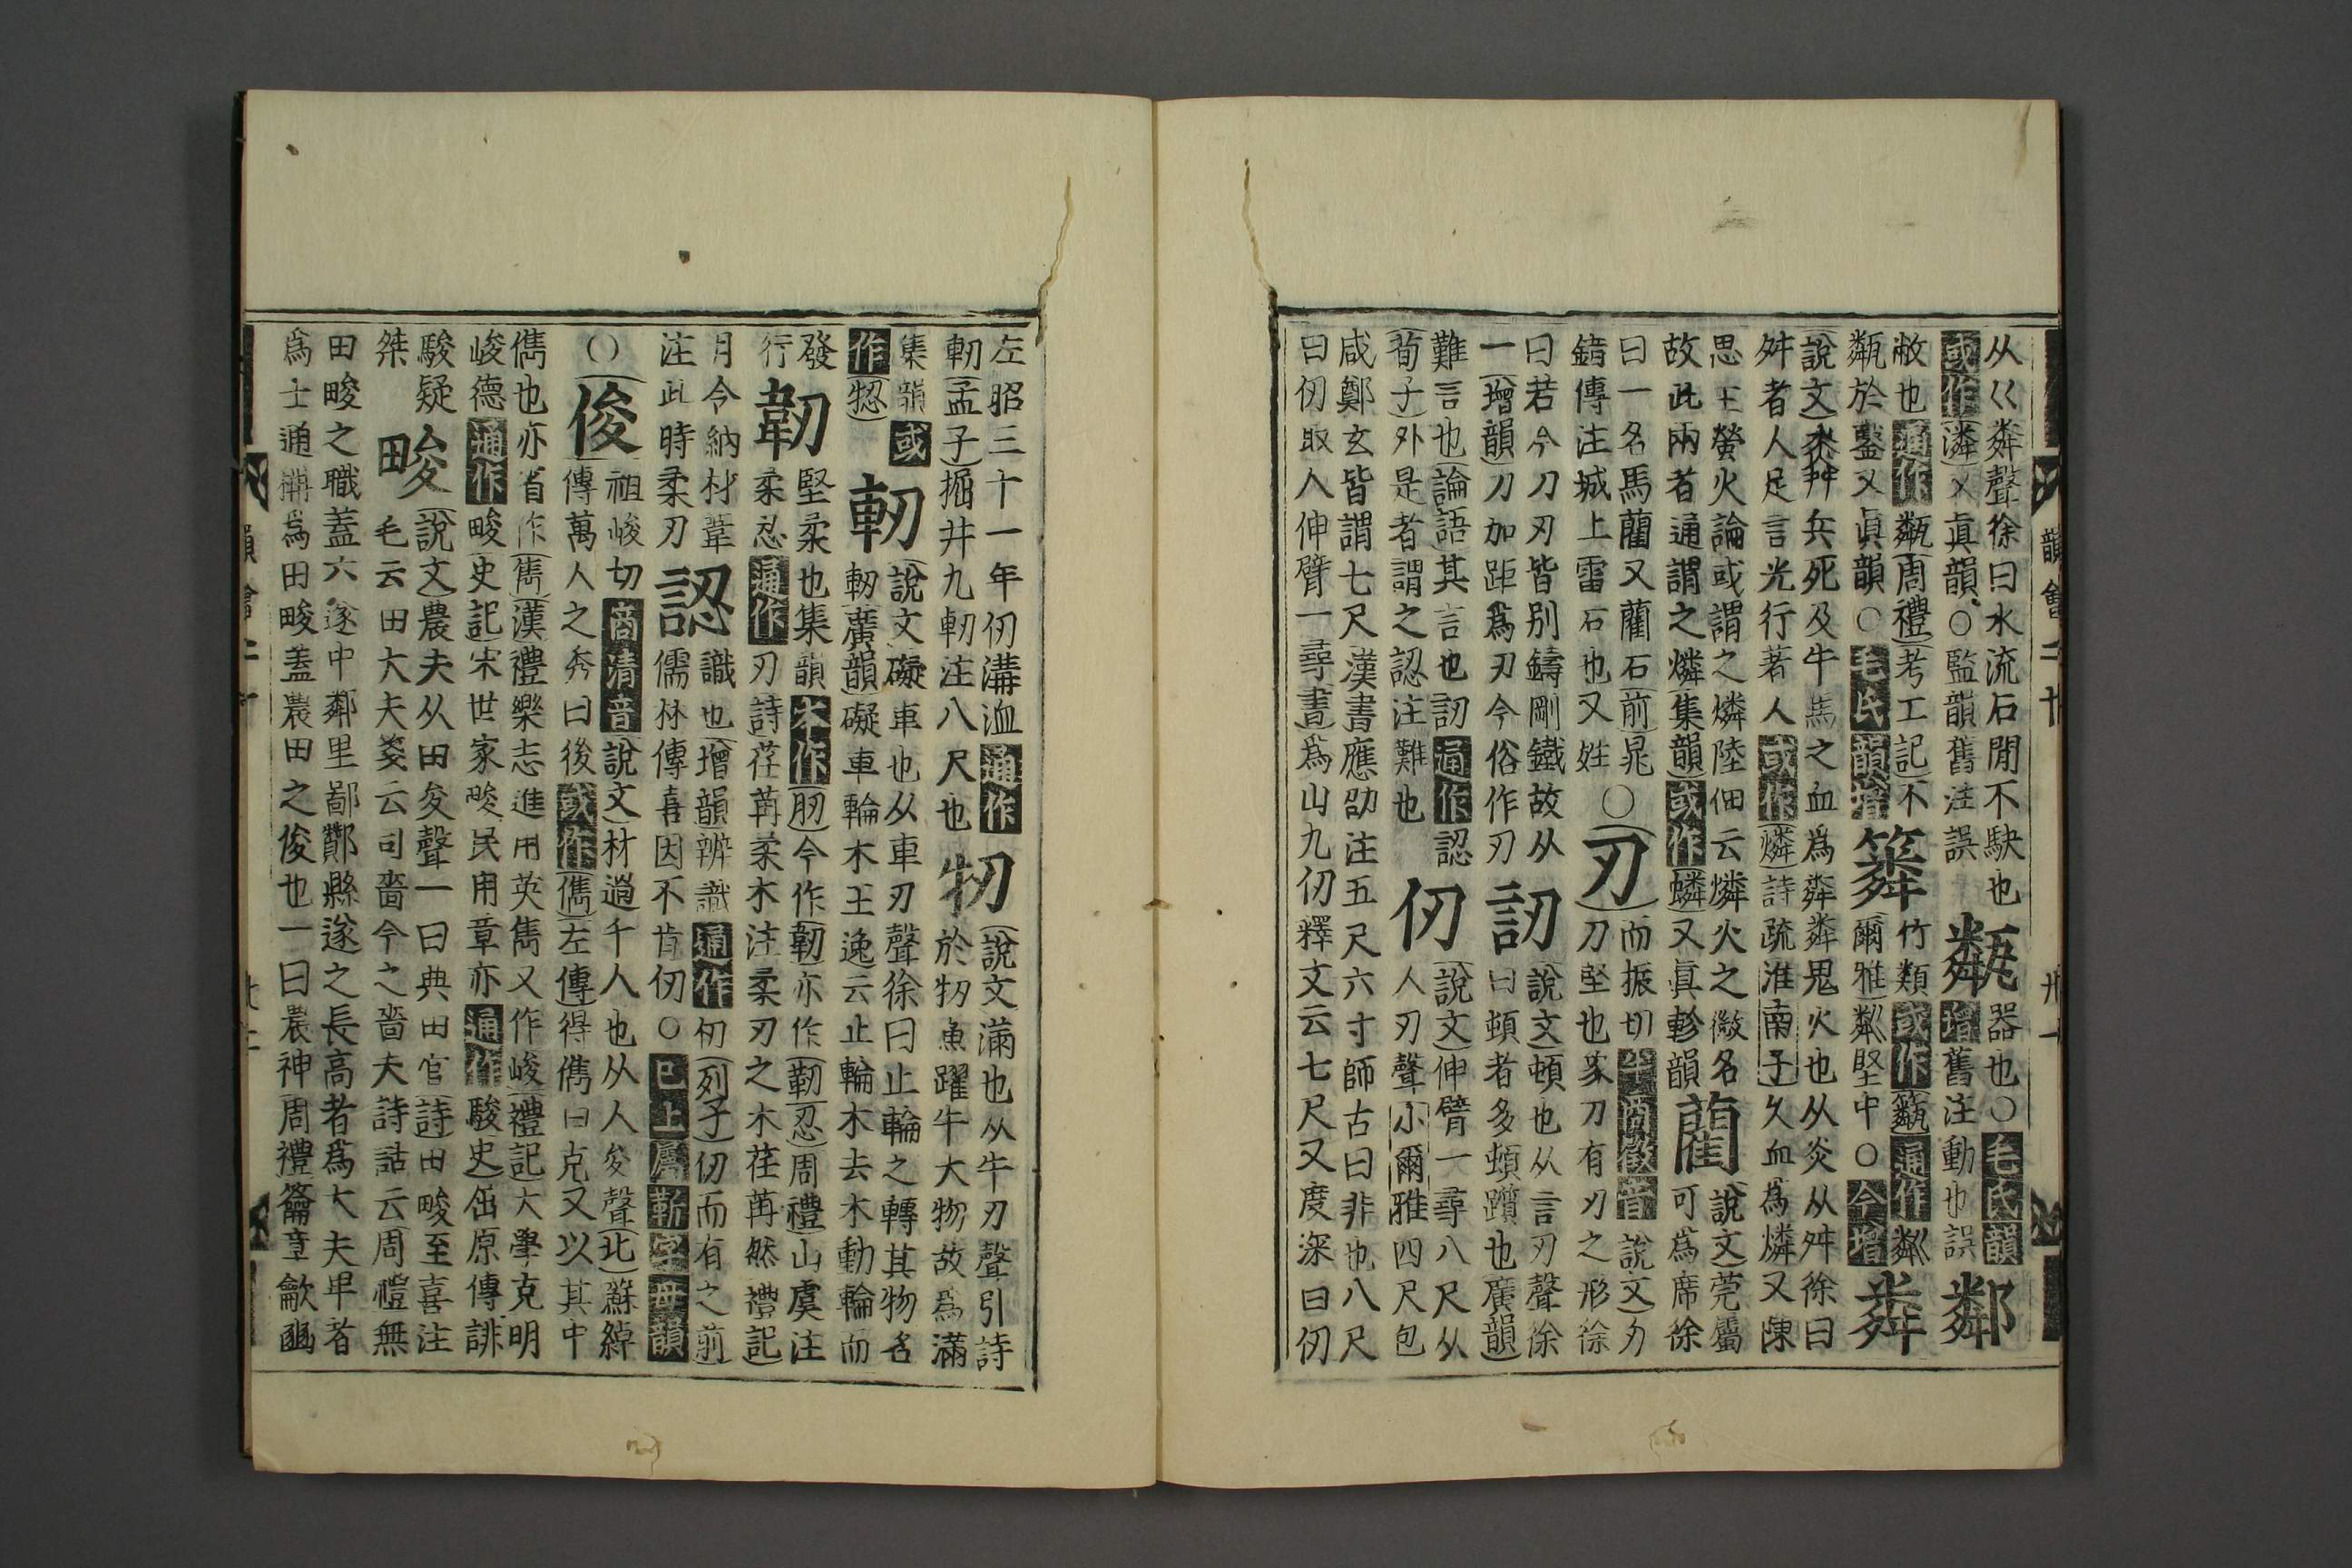 从巜粦聲徐曰水流石閒不駃也
或作潾又眞韻○監韻舊注誤
甐
器也○毛氏韻
增舊注動也誤
鄰
敝也通作甐周禮考工記不
甐於鑿又眞韻○毛氏韻增
簝
竹類或作
爾雅粼堅中○今增
粦
說文兵死及牛馬之血為粦粦鬼火也从炎从舛徐曰
舛者人足言光行著人或作燐詩疏淮南子久血為燐又陳
思王螢火論或謂之燐陸佃云燐火之微名
故此兩者通謂之燐集韻或作蟒又眞軫韻
藺
說文莞屬
可為席徐
曰一名馬藺又藺石前鼂
錯傳注城上雷石也又姓
○刃
而振切半商徵音說文刀
刀堅也象刀有刃之形徐
曰若今刀刃皆別鑄剛鐵故从
一增韻刀加距為刃今俗作刃
訒
說文頓也从言刃聲徐
曰頓者多頓躓也廣韻
難言也論語其言也訒通作認
荀子外是者謂之認注難也
仞
說文伸臂一尋八尺从
人刃聲小爾雅四尺包
咸鄭玄皆謂七尺漢書應劭注五尺六寸師古曰非也八尺
曰仞取人伸臂一尋書為山九仞釋文云七尺又度深曰仞
左昭三十一年仞溝洫通作
軔孟子掘井九軔注八尺也
牣
說文滿也从牛刃聲引詩
於牣魚躍牛大物故為滿
集韻或
作
軔
說文礙車也从車刃聲徐曰止輪之轉其物名
軔廣韻礙車輪木王逸云止輪木去木動輪而
發
行
韌
堅柔也集韻本作肕今作韌亦作靭忍周禮山虞注
柔忍通作刃詩荏苒柔木注柔刃之木荏苒然禮記
月令納材葦
注此時柔刃
認
識也增韻辨識通作仞列子仞而有之前
儒林傳喜因不肯仞○已上屬勒字母韻
○俊
祖峻切商清音說文材過千人也从人夋聲北蘇綽
傳萬人之秀曰後或作儁左傳得儁曰克又以其中
儁也亦省作雋漢禮樂志進用英雋又作峻禮記大學克明
峻德通作畯史記宋世家畯民用章亦通作駿史屈原傳誹
駿疑
桀
畯
說文農夫从田夋聲一曰典田官詩田畯至喜注
毛云田大夫箋云司嗇今之嗇夫詩詁云周禮無
田畯之職蓋六遂中鄰里鄙酇縣遂之長高者為大夫卑者
為士通稱為田畯蓋農田之俊也一曰農神周禮籥章龡豳